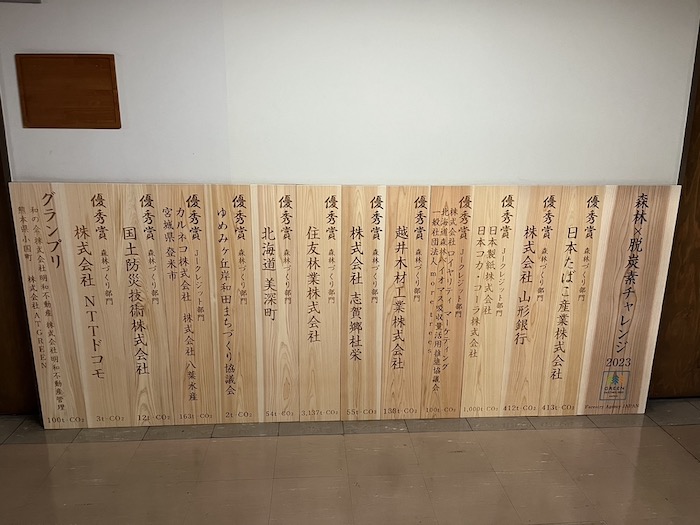 森林×脱炭素チャレンジ
2023
GREEN
Forestry Agency JAPAN
優秀賞 森林づくり部門
日本たばこ産業株式会社
413t-CO₂
優秀賞 森林づくり部門
株式会社 山形銀行
412t-CO₂
優秀賞 Jークレジット部門
日本製紙株式会社
日本コカ・コーラ株式会社
1,000t-CO₂
優秀賞 Jークレジット部門
株式会社 ロイヤリティ マーケティング
北海道森林バイオマス吸収量活用推進協議会
一般社団法人 more trees
100t-CO₂
優秀賞 森林づくり部門
越井木材工業株式会社
138t-CO₂
優秀賞 森林づくり部門
株式会社 志賀郷杜栄
55t-CO₂
優秀賞 森林づくり部門
住友林業株式会社
3,137t-CO₂
優秀賞 森林づくり部門
北海道 美深町
54t-CO₂
優秀賞 森林づくり部門
ゆめみヶ丘岸和田まちづくり協議会
2t-CO₂
優秀賞 Jークレジット部門
カルネコ株式会社 株式会社 八葉水産
宮城県 登米市
163t-CO₂
優秀賞 森林づくり部門
国土防災技術株式会社
12t-CO₂
優秀賞 森林づくり部門
株式会社 NTTドコモ
3t-CO₂
グランプリ
和の会 株式会社明和不動産 株式会社明和不動産管理
熊本県小国町 株式会社ATGREEN
100t-CO₂